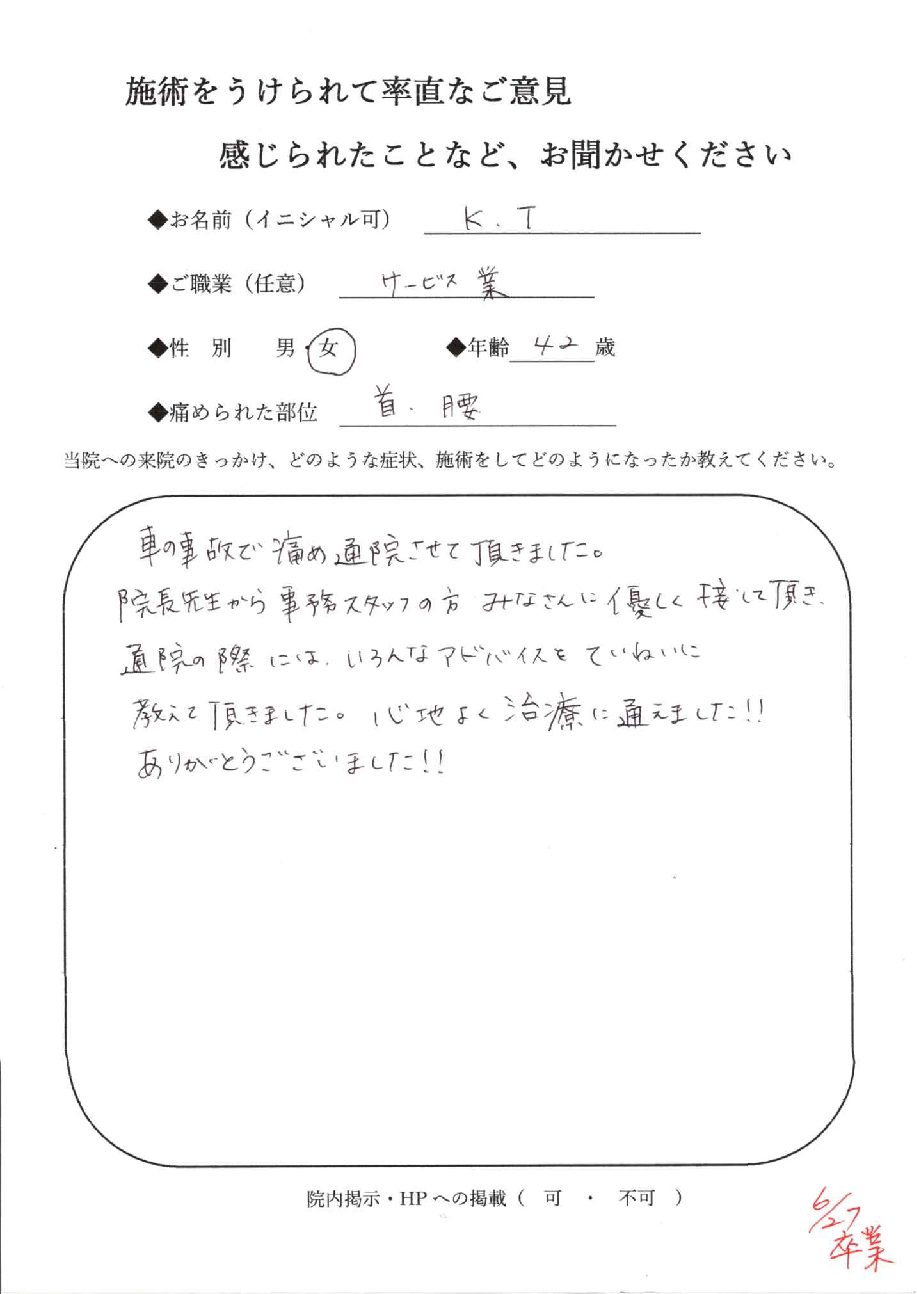 施術をうけられて率直なご意見
感じられたことなど、お聞かせください
◆お名前（イニシャル可） K.T
◆ご職業（任意） サービス業
◆性　別　　男・女　　◆年齢 42 歳
◆痛められた部位 首.腰
当院への来院のきっかけ、どのような症状、施術をしてどのようになったか教えてください。
車の事故で痛め通院させて頂きました。
院長先生から事務スタッフの方 みなさんに優しく接して頂き、
通院の際には、いろんなアドバイスをていねいに
教えて頂きました。心地よく治療に通えました!!
ありがとうございました!!
院内掲示・HPへの掲載（　可　・　不可　）
6/27
卒業